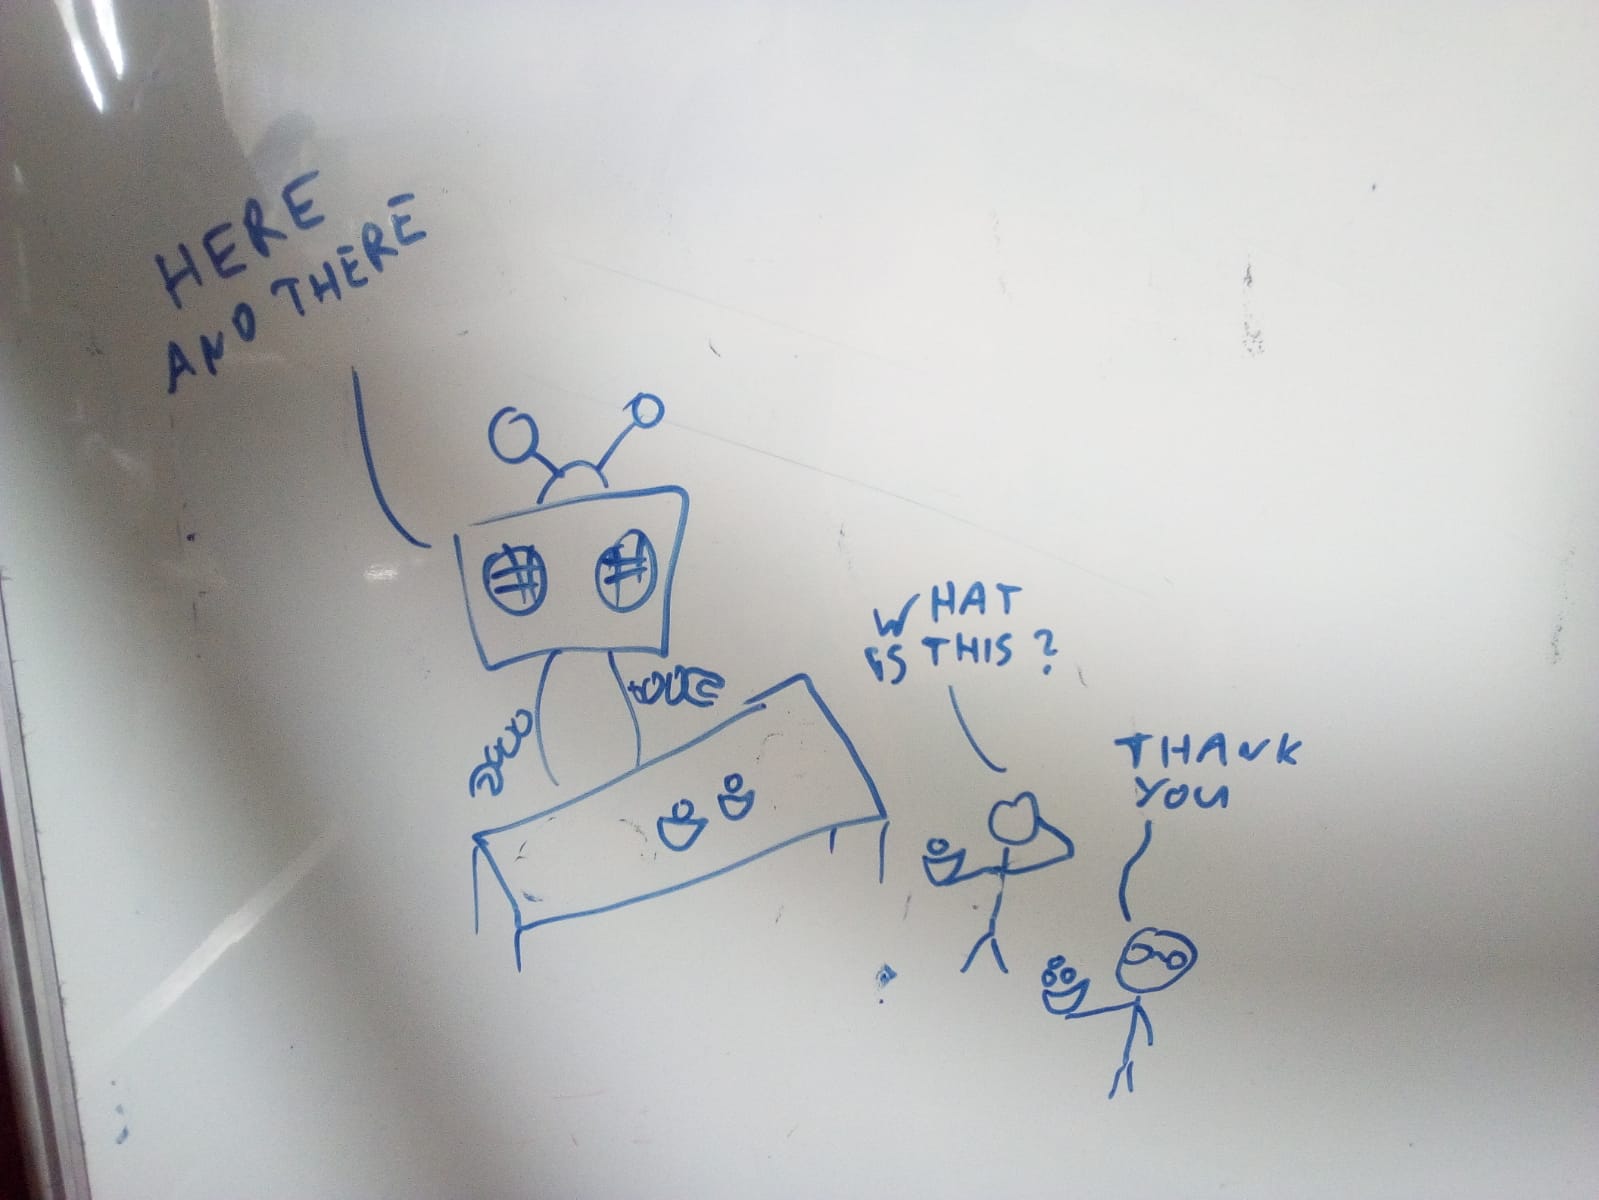 HERE
AND THERE
WHAT
IS THIS?
THANK
YOU